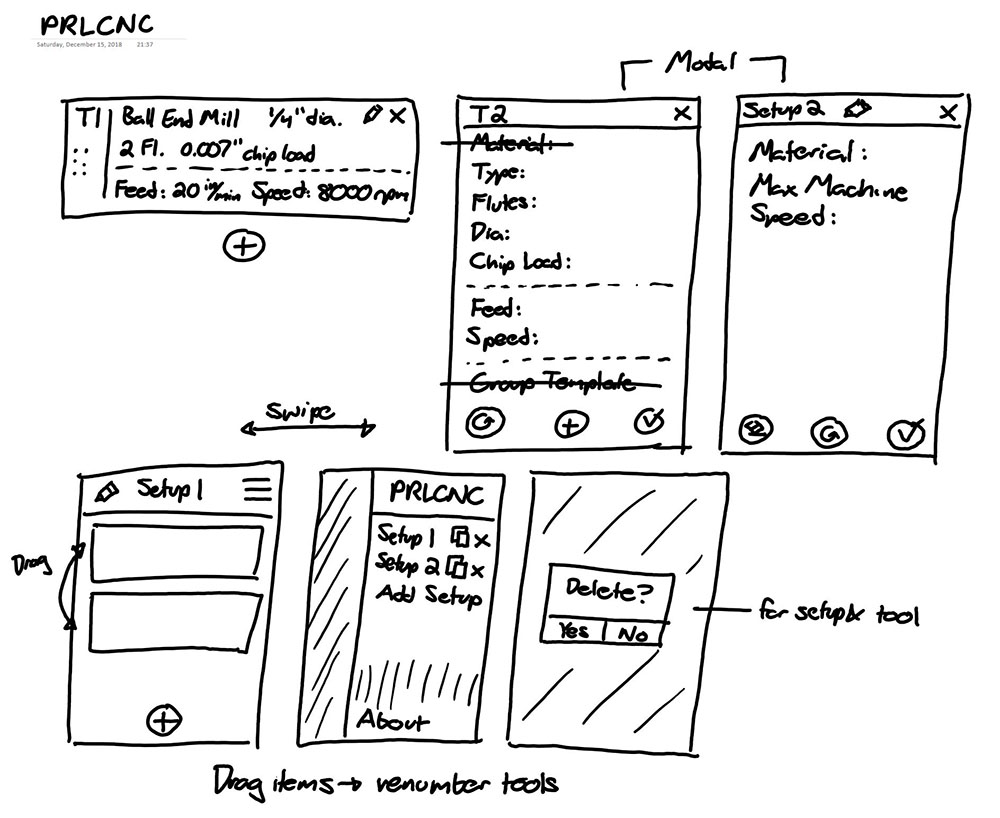 PRLCNC
Saturday, December 15, 2018 21:37
Modal
T1 Ball End Mill 1/4" dia. X
2 Fl. 0.007" chip load
Feed: 20 in/min Speed: 8000 rpm
+
T2 X
Material:
Type:
Flutes:
Dia:
Chip Load:
Feed:
Speed:
Group Template
+
Setup 2 X
Material:
Max Machine
Speed:
Swipe
Setup 1
Drag
+
PRLCNC
Setup 1 X
Setup 2 X
Add Setup
About
Delete?
Yes No
for setup & tool
Drag items → renumber tools